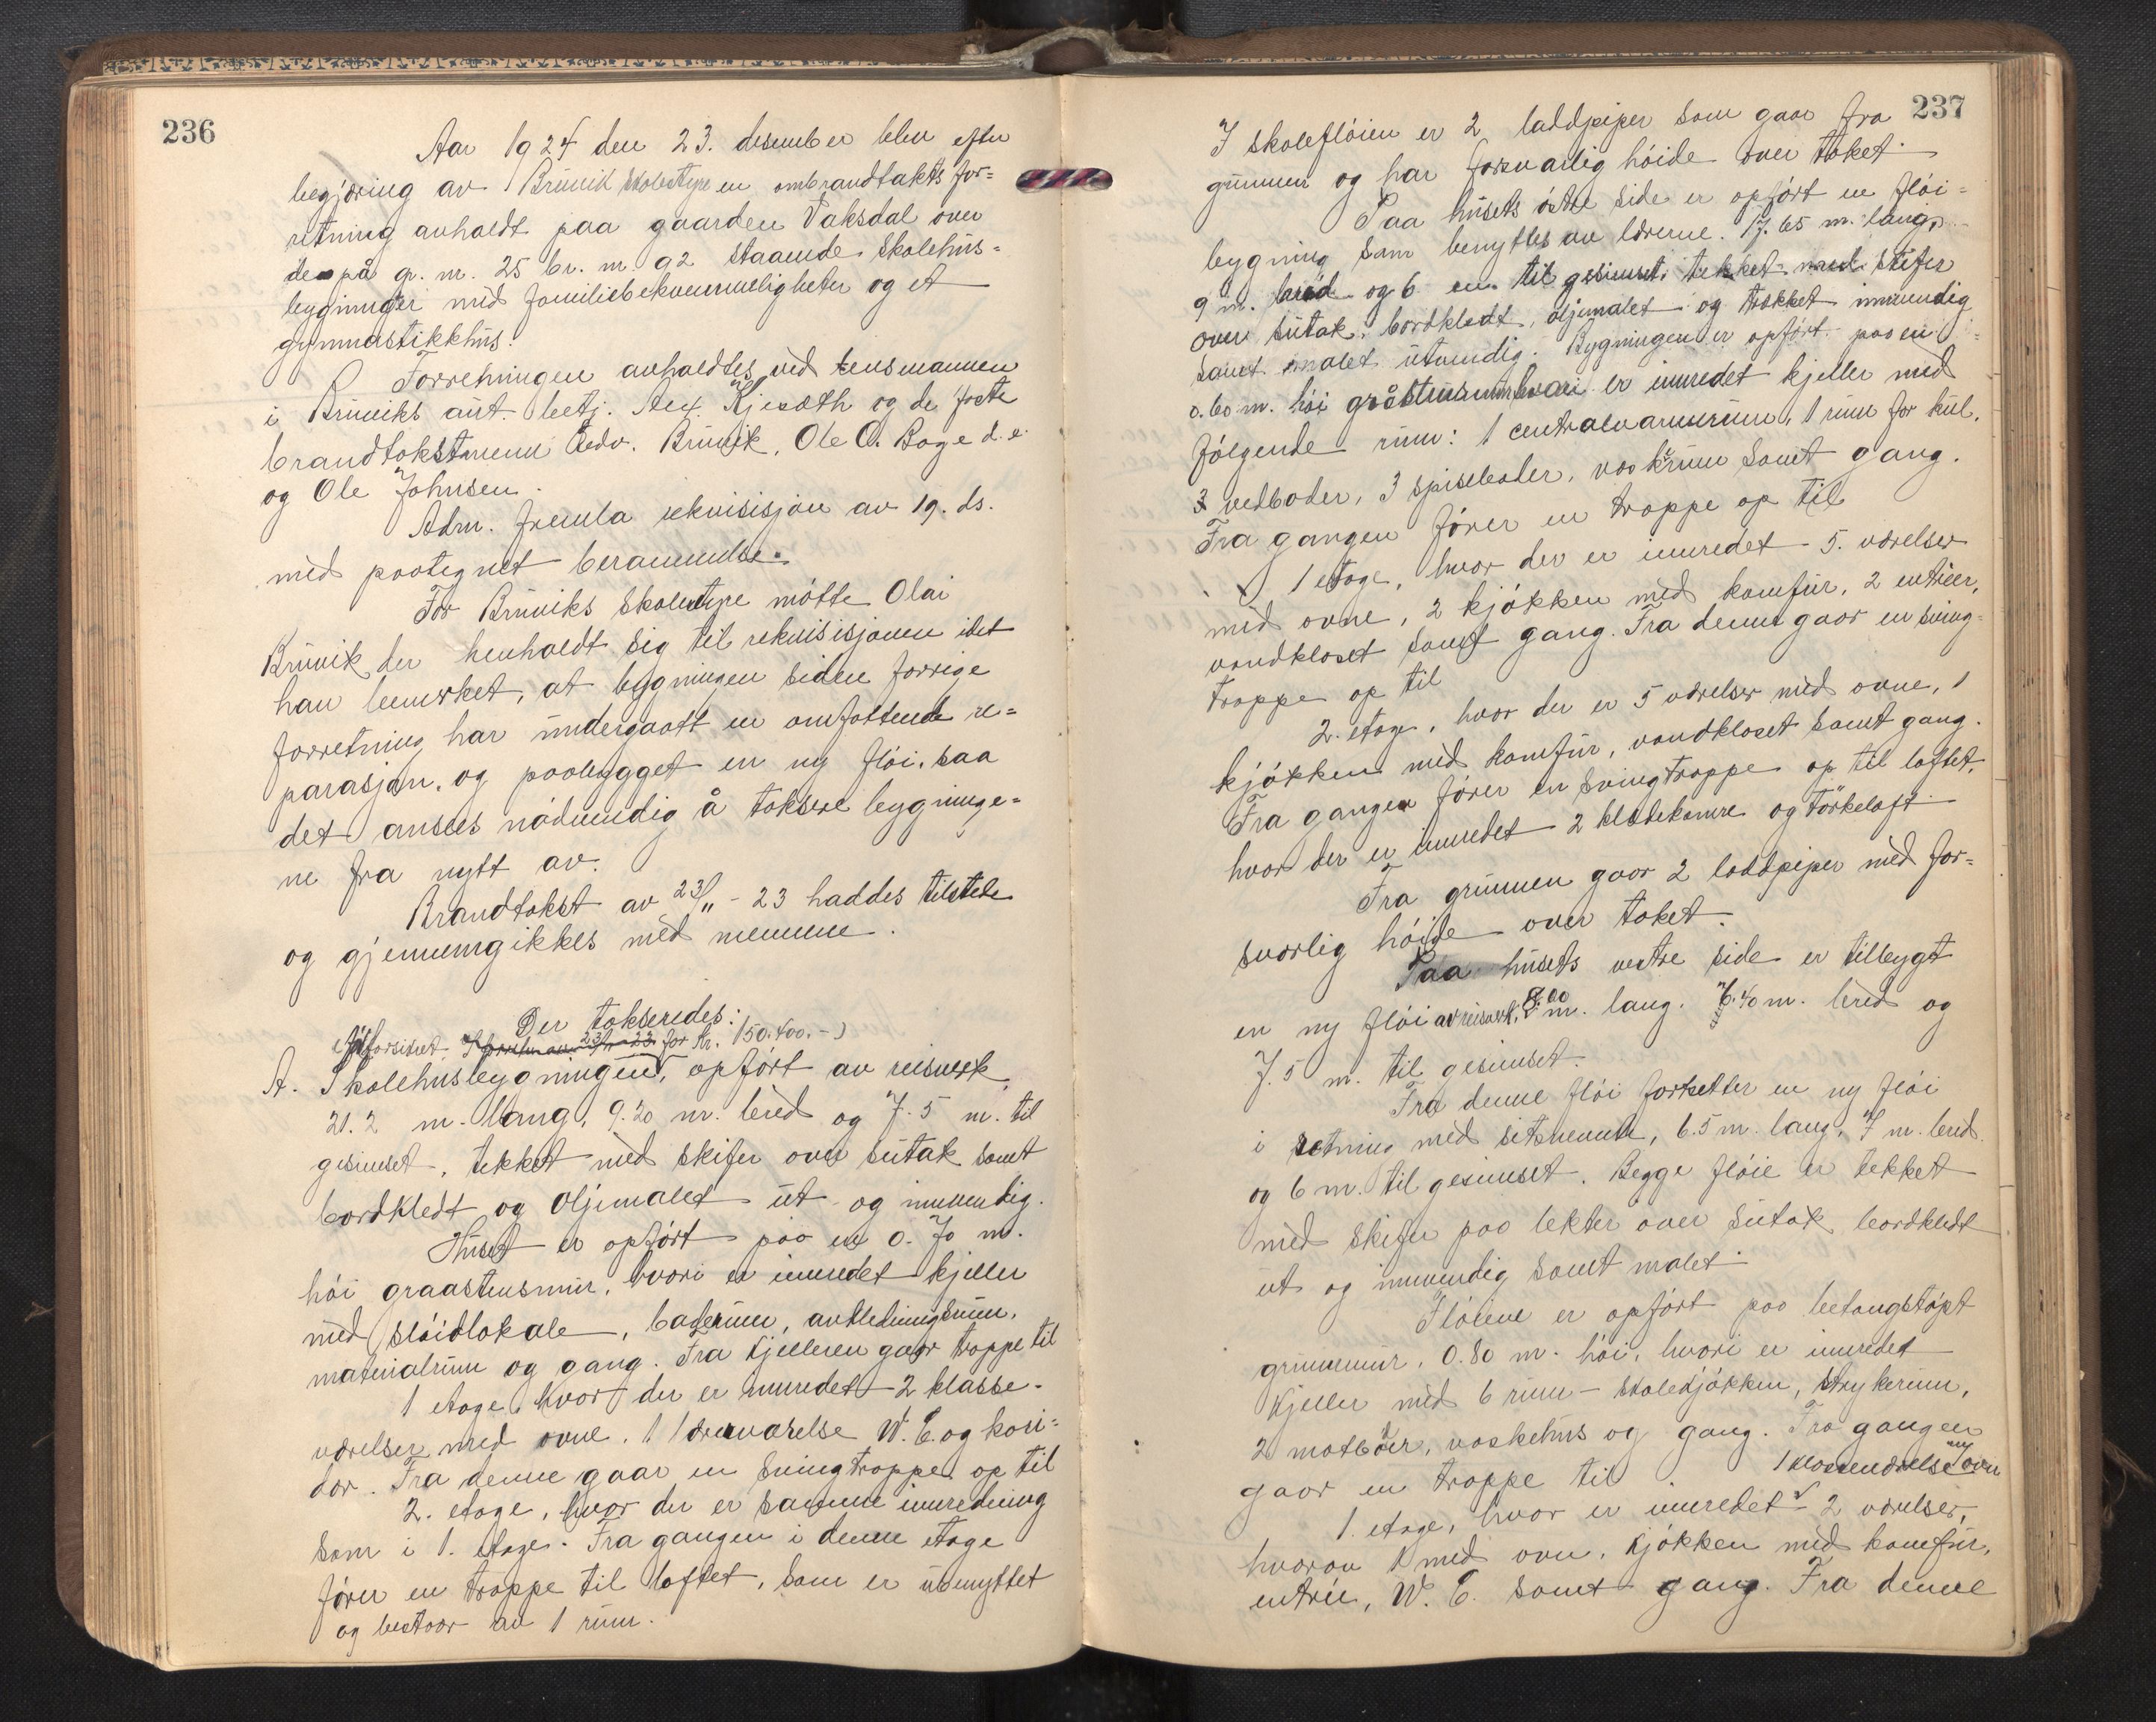 236
Aar 1924 den 23. desember blev efter
begjæring av Bruvik skolestyre en ombrandtakstfor=
retning avholdt paa gaarden Vaksdal over
de på gr. nr. 25 br. nr. 92 staaende skolehus=
bygninger med familiebekvemmeligheter og et
gymnastikkhus.
Forretningen avholdtes ved lensmannen
i Bruviks aut. betj. Alex. Kjesæth og de faste
brandtakstmenn Edv. Bruvik, Ole O. Boge d.e.
og Ole Johnsen.
Adm. fremla rekvisisjon av 19. ds.
med paategnet berammelse.
For Bruviks skolestyre møtte Olai
Bruvik der henholdt sig til rekvisisjonen idet
han bemerket, at bygningen siden forrige
forretning har undergaatt en omfattende re=
parasjon, og paabygget en ny fløi, saa
det ansees nødvendig å taksere bygninge=
ne fra nytt av.
Brandtakst av 23/11 - 23 haddes tilstede
og gjennemgikkes med mennene.
Der takseredes:
for kr. 150.400.-)
A. Skolehusbygningen, opført av reisverk,
21.2 m. lang, 9.20 m. bred og 7.5 m. til
gesimset, tekket med skifer over sutak samt
bordkledt og oljemalet ut og innvendig.
Huset er opført paa en 0.70 m.
høi graastensmur, hvori er innredet kjeller
med sløidlokale, baderum, avkledningsrum,
materialrum og gang. Fra kjelleren gaar trappe til
1 etage, hvor der er innredet 2 klasse-
værelser med ovne, 1 læreværelse W.C. og kori=
dor. Fra denne gaar en svingtrappe op til
2. etage, hvor der er samme innredning
som i 1. etage. Fra gangen i denne etage
fører en trappe til loftet, som er ubenyttet
og bestaar av 1 rum.
237
I skolefløien er 2 laddpiper som gaar fra
grunnen og har forsvarlig høide over taket.
Paa husets østre side er opført en fløi=
bygning som benyttes av lærerne. 17.65 m. lang,
9 m. bred og 6 m. til gesimset, tekket med skifer
over sutak, bordkledt, oljemalet og trekket innvendig
samt malet utvendig. Bygningen er opført paa en
0.60 m. høi gråstensmur hvori er innredet kjeller med
følgende rum: 1 centralvarmerum, 1 rum for kul,
3 vedboder, 3 spiseboder, vaskerum samt gang.
Fra gangen fører en trappe op til
1 etage, hvor der er innredet 5. værelser
med ovne, 2 kjøkken med komfur, 2 entreer,
vandkloset samt gang. Fra denne gaar en sving-
trappe op til
2. etage, hvor der er 5 værelser med ovne, 1
kjøkken med komfur, vandkloset samt gang.
Fra gangen fører en svingtrappe op til loftet,
hvor der er innredet 2 klædekamre og tørkeloft.
Fra grunnen gaar 2 laddpiper med for=
svarlig høide over taket.
Paa husets vestre side er tilbygt
en ny fløi av reisverk, 8.00 m. lang. 6.40 m. bred og
7.5 m. til gesimset.
Fra denne fløi fortsetter en ny fløi
i retning med sitsnevnte, 6.5 m. lang, 7 m. bred
og 6 m. til gesimset. Begge fløie er tekket
med skifer paa lekter over sutak, bordkledt
ut og innvendig samt malet.
Fløiene er opført paa betongstøpt
grunnmur, 0.80 m. høi, hvori er innredet
kjeller med 6 rum - skolekjøkken, strykerum,
2 matboder, vaskehus og gang. Fra gangen
gaar en trappe til
1 klasseværelse m/ ovn
1. etage, hvor er innredet 2 værelser,
hvorav 1 med ovn, kjøkken med komfur,
entrée, W.C. samt gang. Fra denne